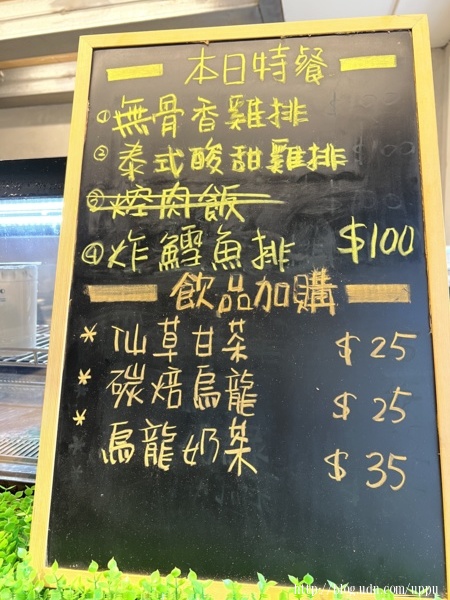 本日特餐
① 無骨香雞排
② 泰式酸甜雞排
③ 焢肉飯
④ 炸鱈魚排 $100
飲品加購
* 仙草甘茶 $25
* 碳焙烏龍 $25
* 烏龍奶茶 $35
http://blog.udn.com/uppu